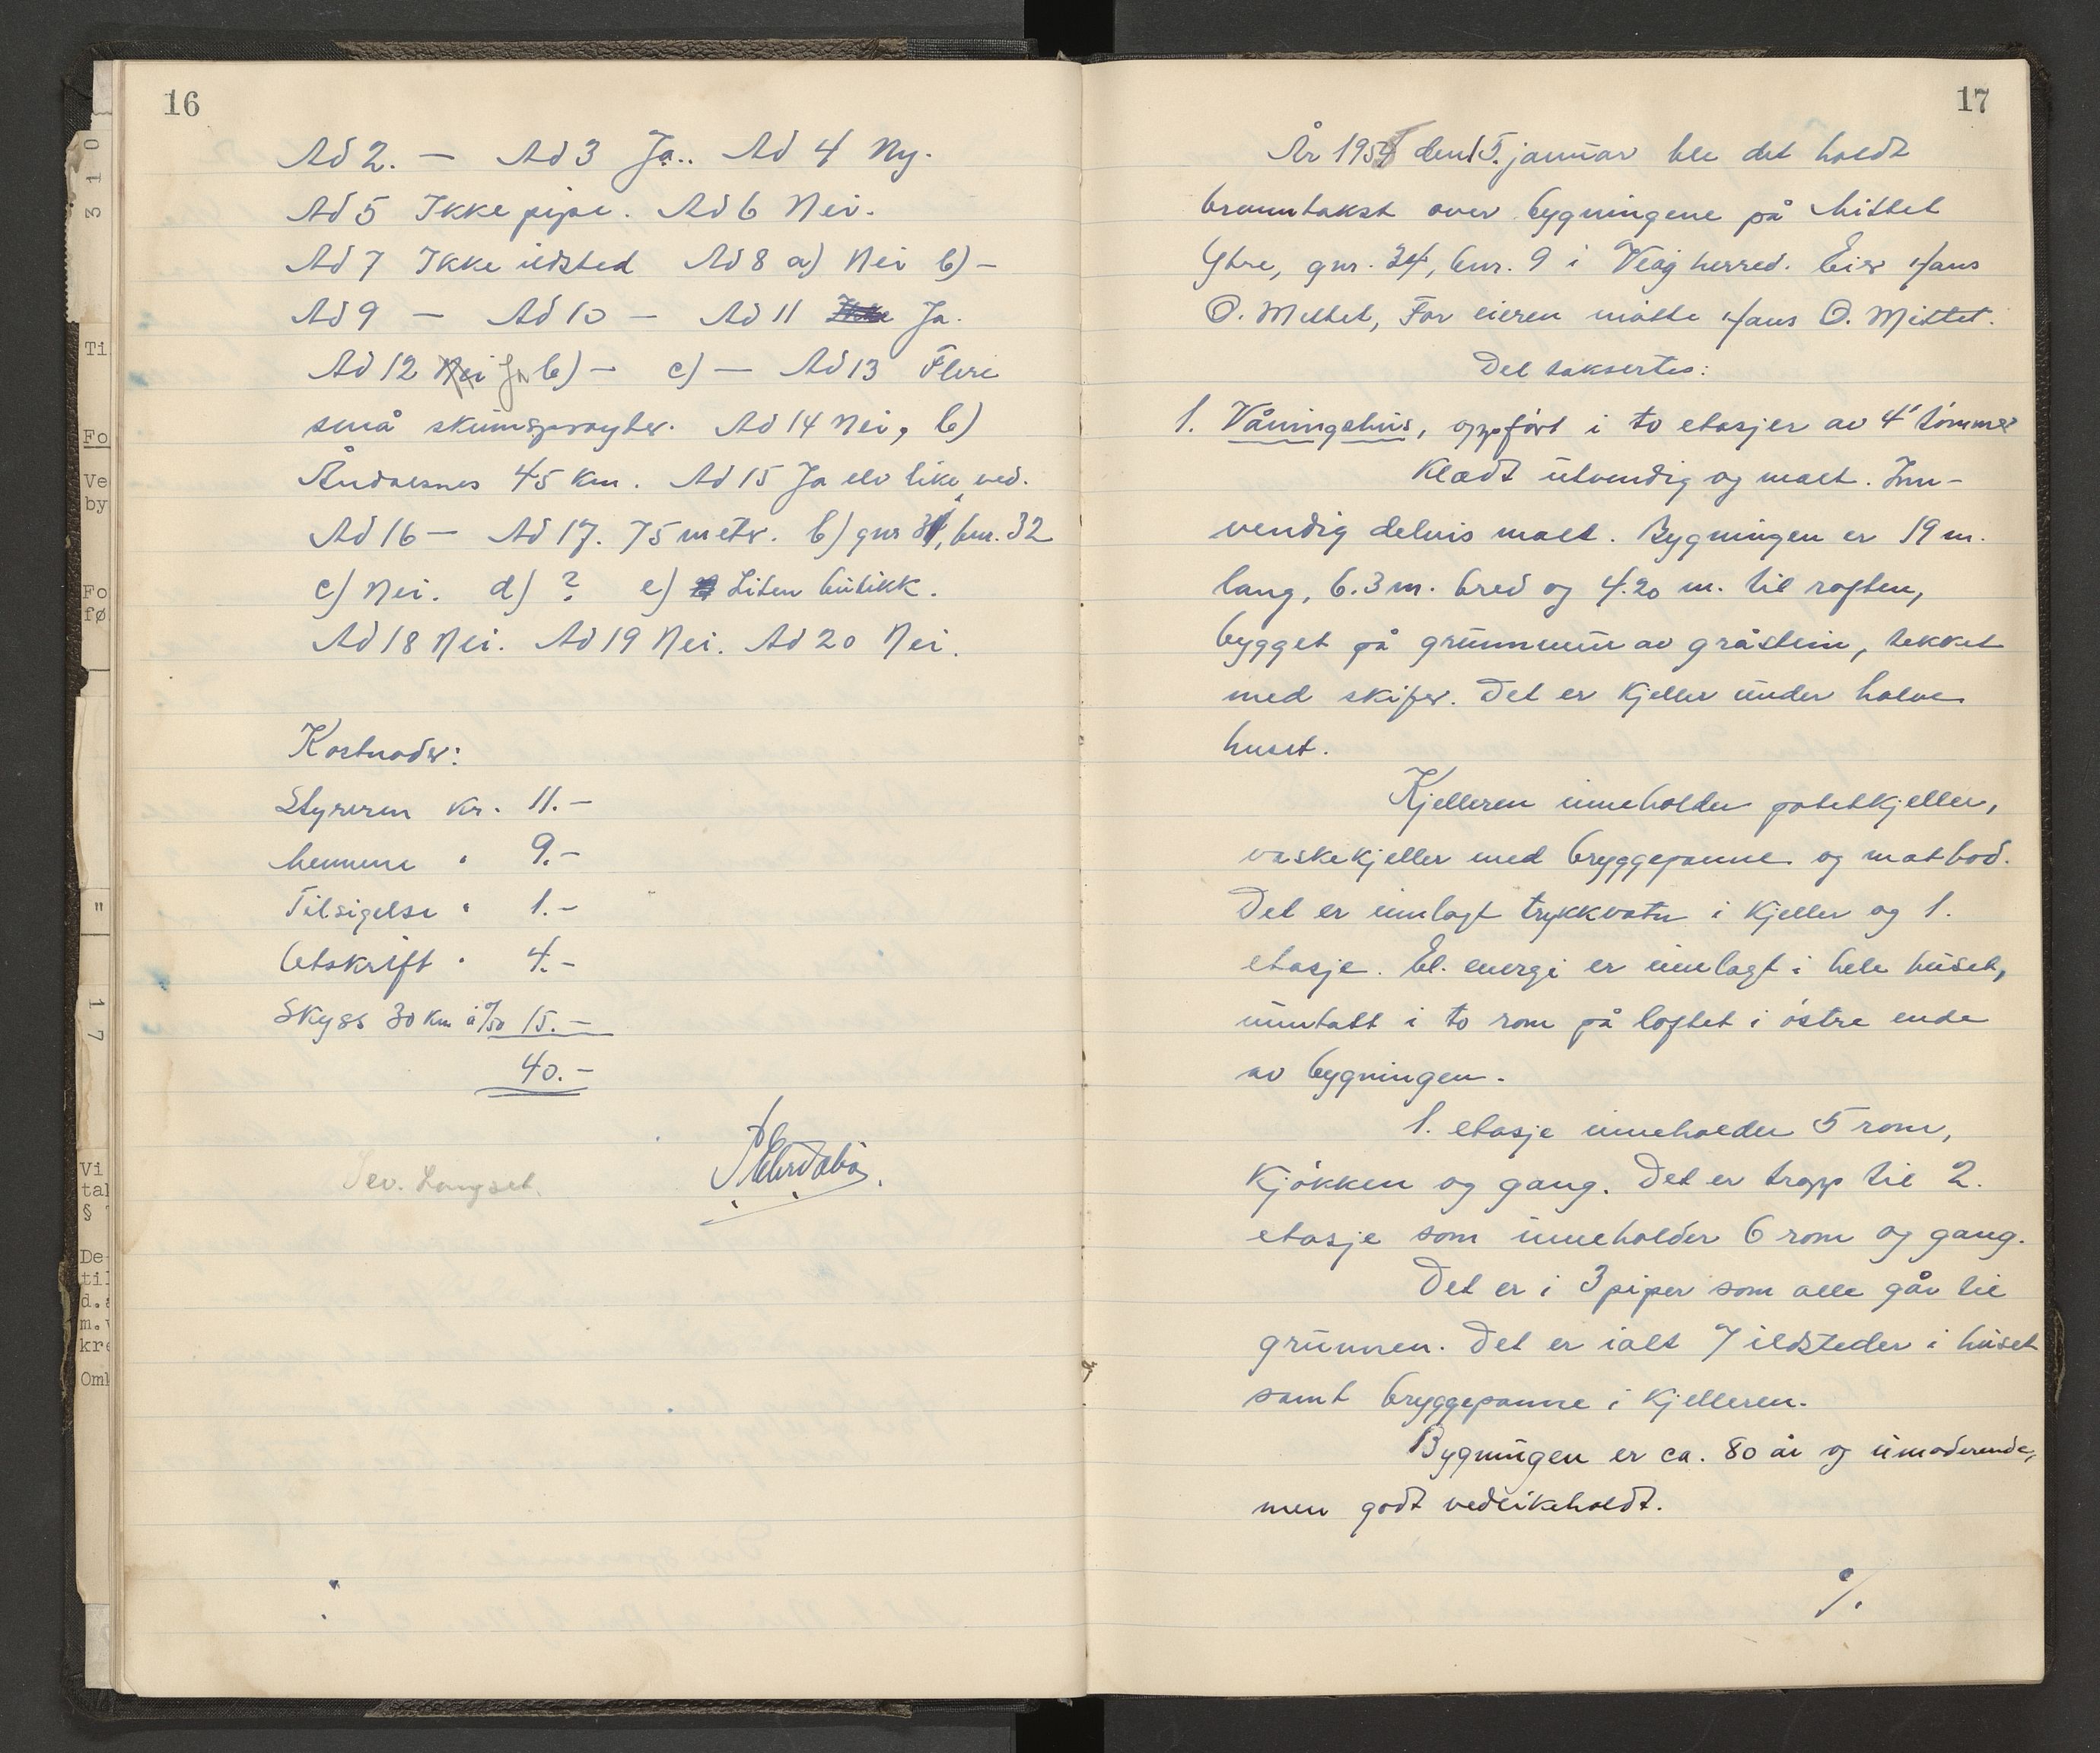 16
Ad 2. — Ad 3 Ja.. Ad 4 Ny.
Ad 5 Ikke pipe. Ad 6 Nei.
Ad 7 Ikke ildsted Ad 8 a) Nei b) —
Ad 9 — Ad 10 — Ad 11 Ja.
Ad 12 Nei Ja b) — c) — Ad 13 Flere
små skumsprøyter. Ad 14 Nei, b)
Åndalsnes 45 km. Ad 15 Ja elv like ved.
Ad 16 — Ad 17. 75 meter. b) gnr 34, bnr. 32
c) Nei. d) ? e) Liten butikk.
Ad 18 Nei. Ad 19 Nei. Ad 20 Nei.
Kostnader:
Styreren kr. 11.—
Mennene " 9.—
Tilsigelse " 1.—
Utskrift " 4.—
Skyss 30 km á 0/50 15.—
40.—
Sev. Langset.
17
År 1954 den 15. januar ble det holdt
branntakst over bygningene på Mittet
Ytre, gnr. 34, bnr. 9 i Veøy herred. Eier Hans
O. Mittet, For eieren møtte Hans O. Mittet.
Det taksertes:
1. Våningshus, oppført i to etasjer av 4" tømmer
Kledt utvendig og malt. Inn-
vendig delvis malt. Bygningen er 19 m.
lang, 6.3 m. bred og 4.20 m. til raften,
bygget på grunnmur av gråstein, tekket
med skifer. Det er kjeller under halve
huset.
Kjelleren inneholder potetkjeller,
vaskekjeller med bryggepanne og matbod.
Det er innlagt trykkvatn i kjeller og 1.
etasje. El. energi er innlagt i hele huset,
unntatt i to rom på loftet i østre ende
av bygningen.
1. etasje inneholder 5 rom,
kjøkken og gang. Det er trapp til 2.
etasje som inneholder 6 rom og gang.
Det er i 3 piper som alle går til
grunnen. Det er ialt 7 ildsteder i huset
samt bryggepanne i kjelleren.
Bygningen er ca. 80 år og umoderende,
men godt vedlikeholdt.
%.
3 1 0
Ti
Fo
Ve
by
Fo
fø
"
1 7
Vi
tal
§
De
til
d.a
m.v
kre
Oml